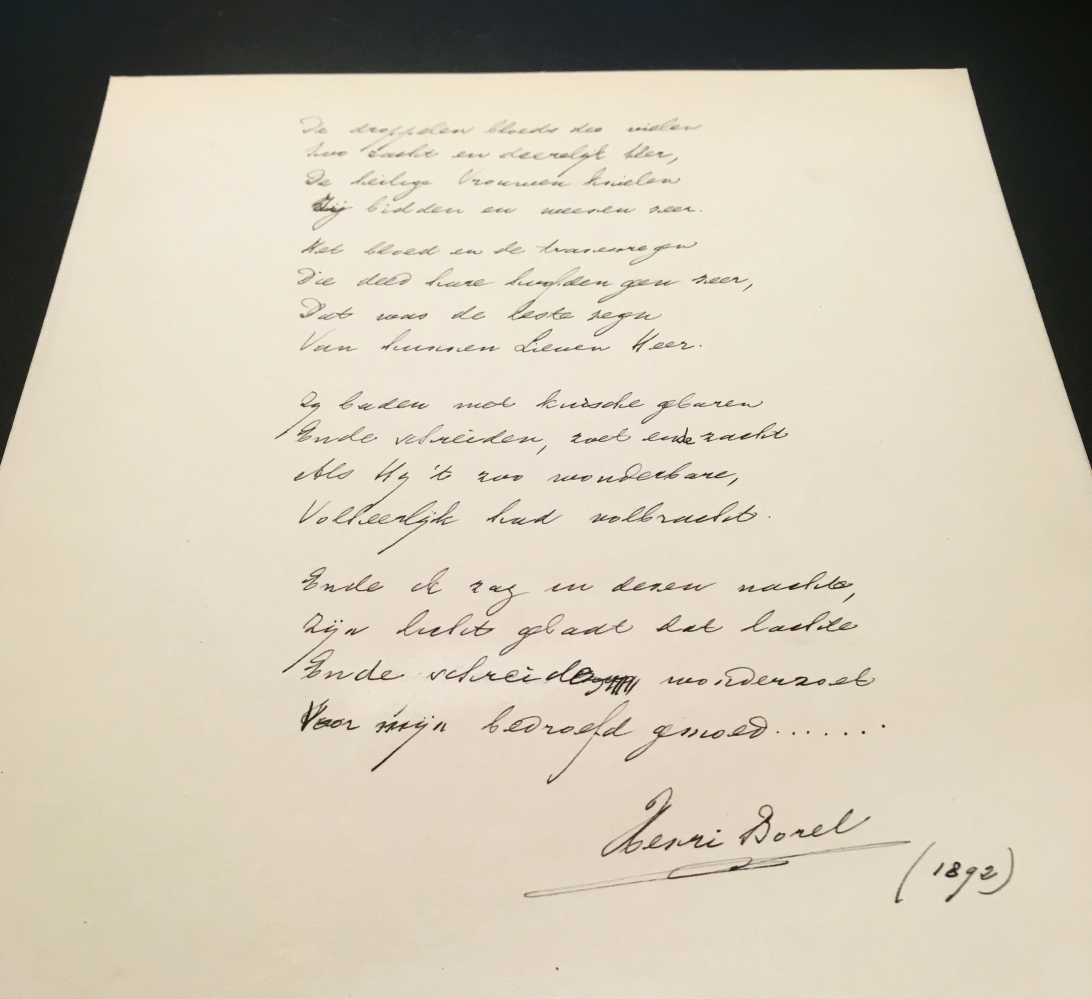 De droppelen bloeds die vielen
Zoo zacht en deerelyk neer,
De heilige Vrouwen knielen
Zij bidden en weenen zeer.
Het bloed en de tranenregen
Die deed hare hoofden gen zeer,
Dat was de leste zegn
Van hunnen Lieven Heer.
Zy baden met kuische gbaren
Ende schreiden, zoet ende zacht
Als Hy 't zoo wonderbare,
Volheerlijk had volbracht.
Ende ik zag in dezen nachte,
Zijn licht glaat dat lachte
Ende schreide wonderzoet
Voor mijn bedroefd gemoed.......
Henri Borel
(1892)